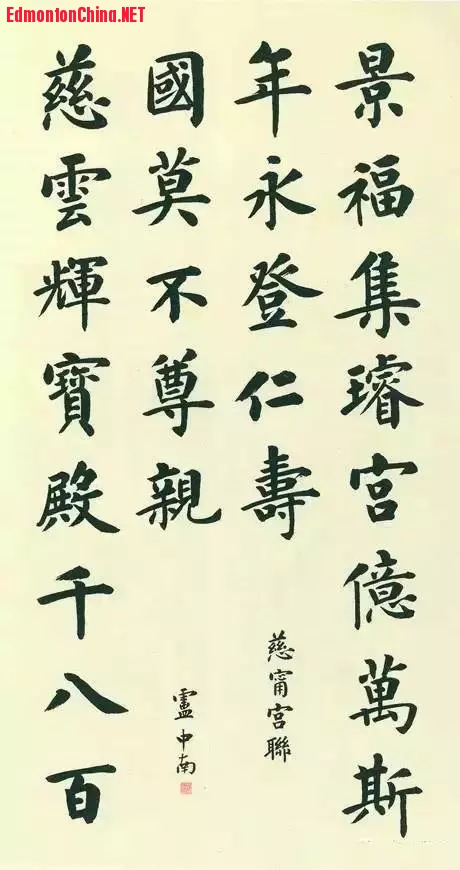 EdmontonChina.NET
景福集璿宮億萬斯
年永登仁壽
慈甯宮聯
慈雲輝寶殿千八百
國莫不尊親
盧中南